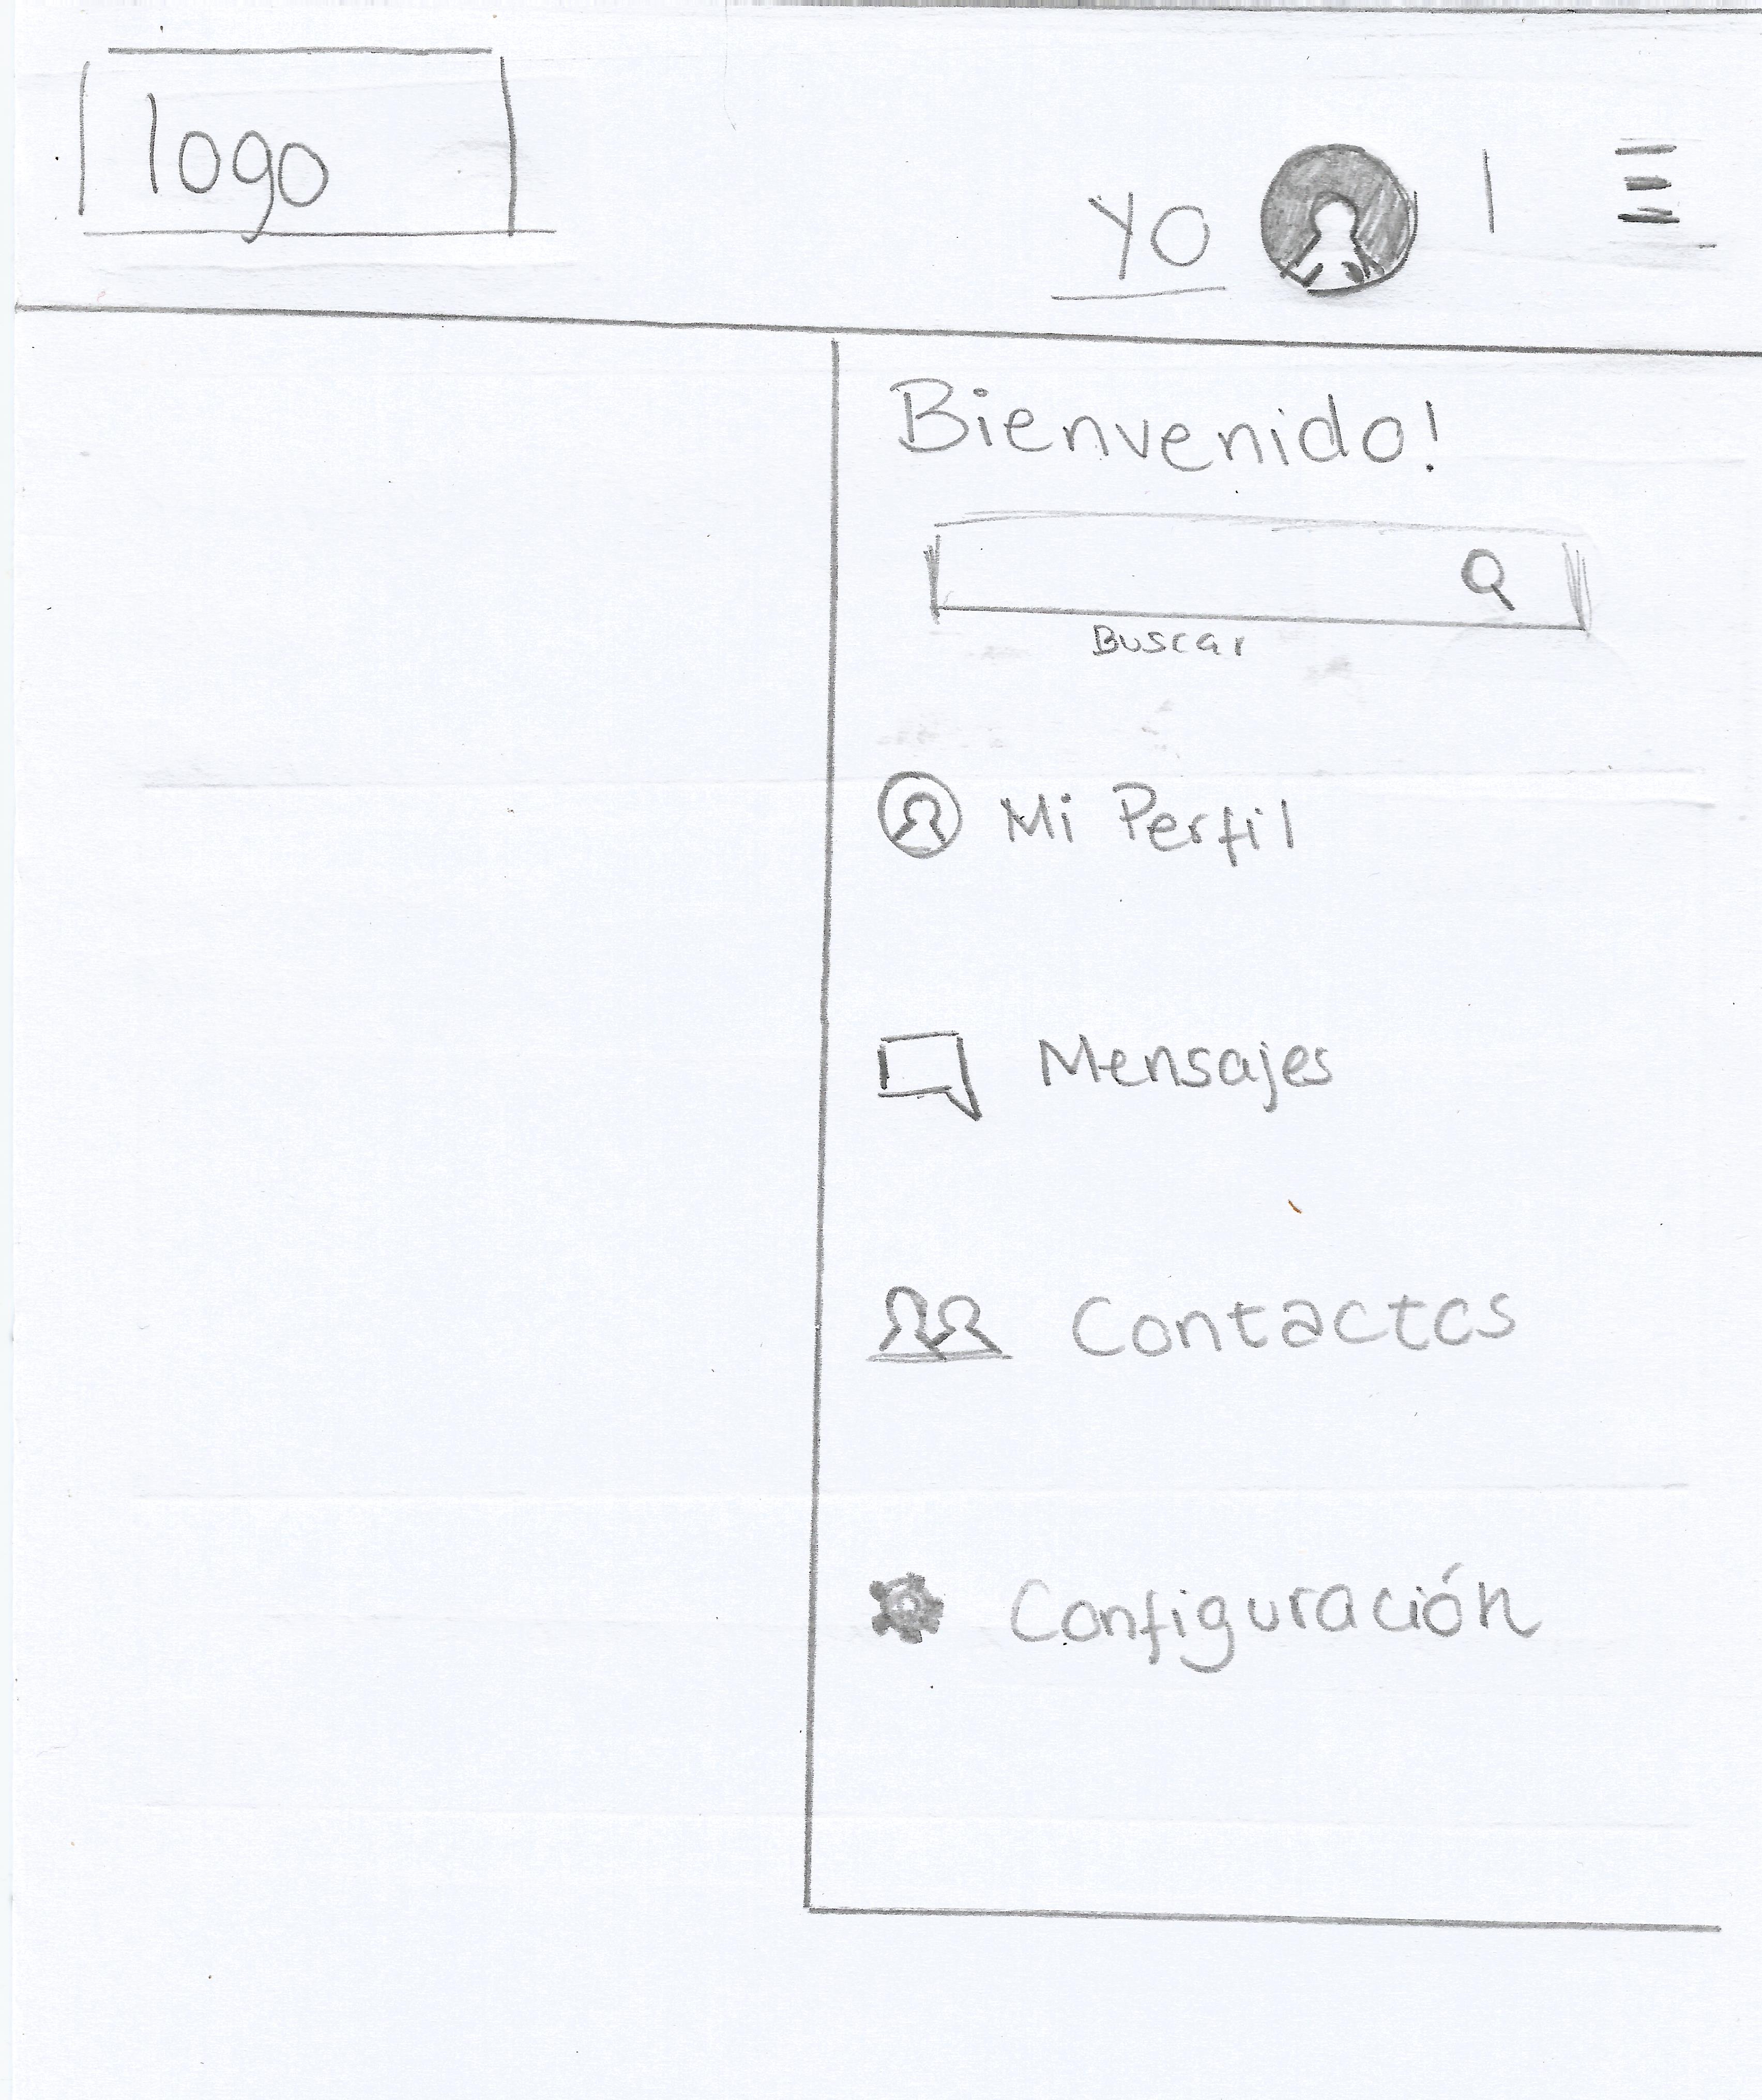 logo
yo
Bienvenido!
Buscar
Mi Perfil
Mensajes
Contactos
Configuración